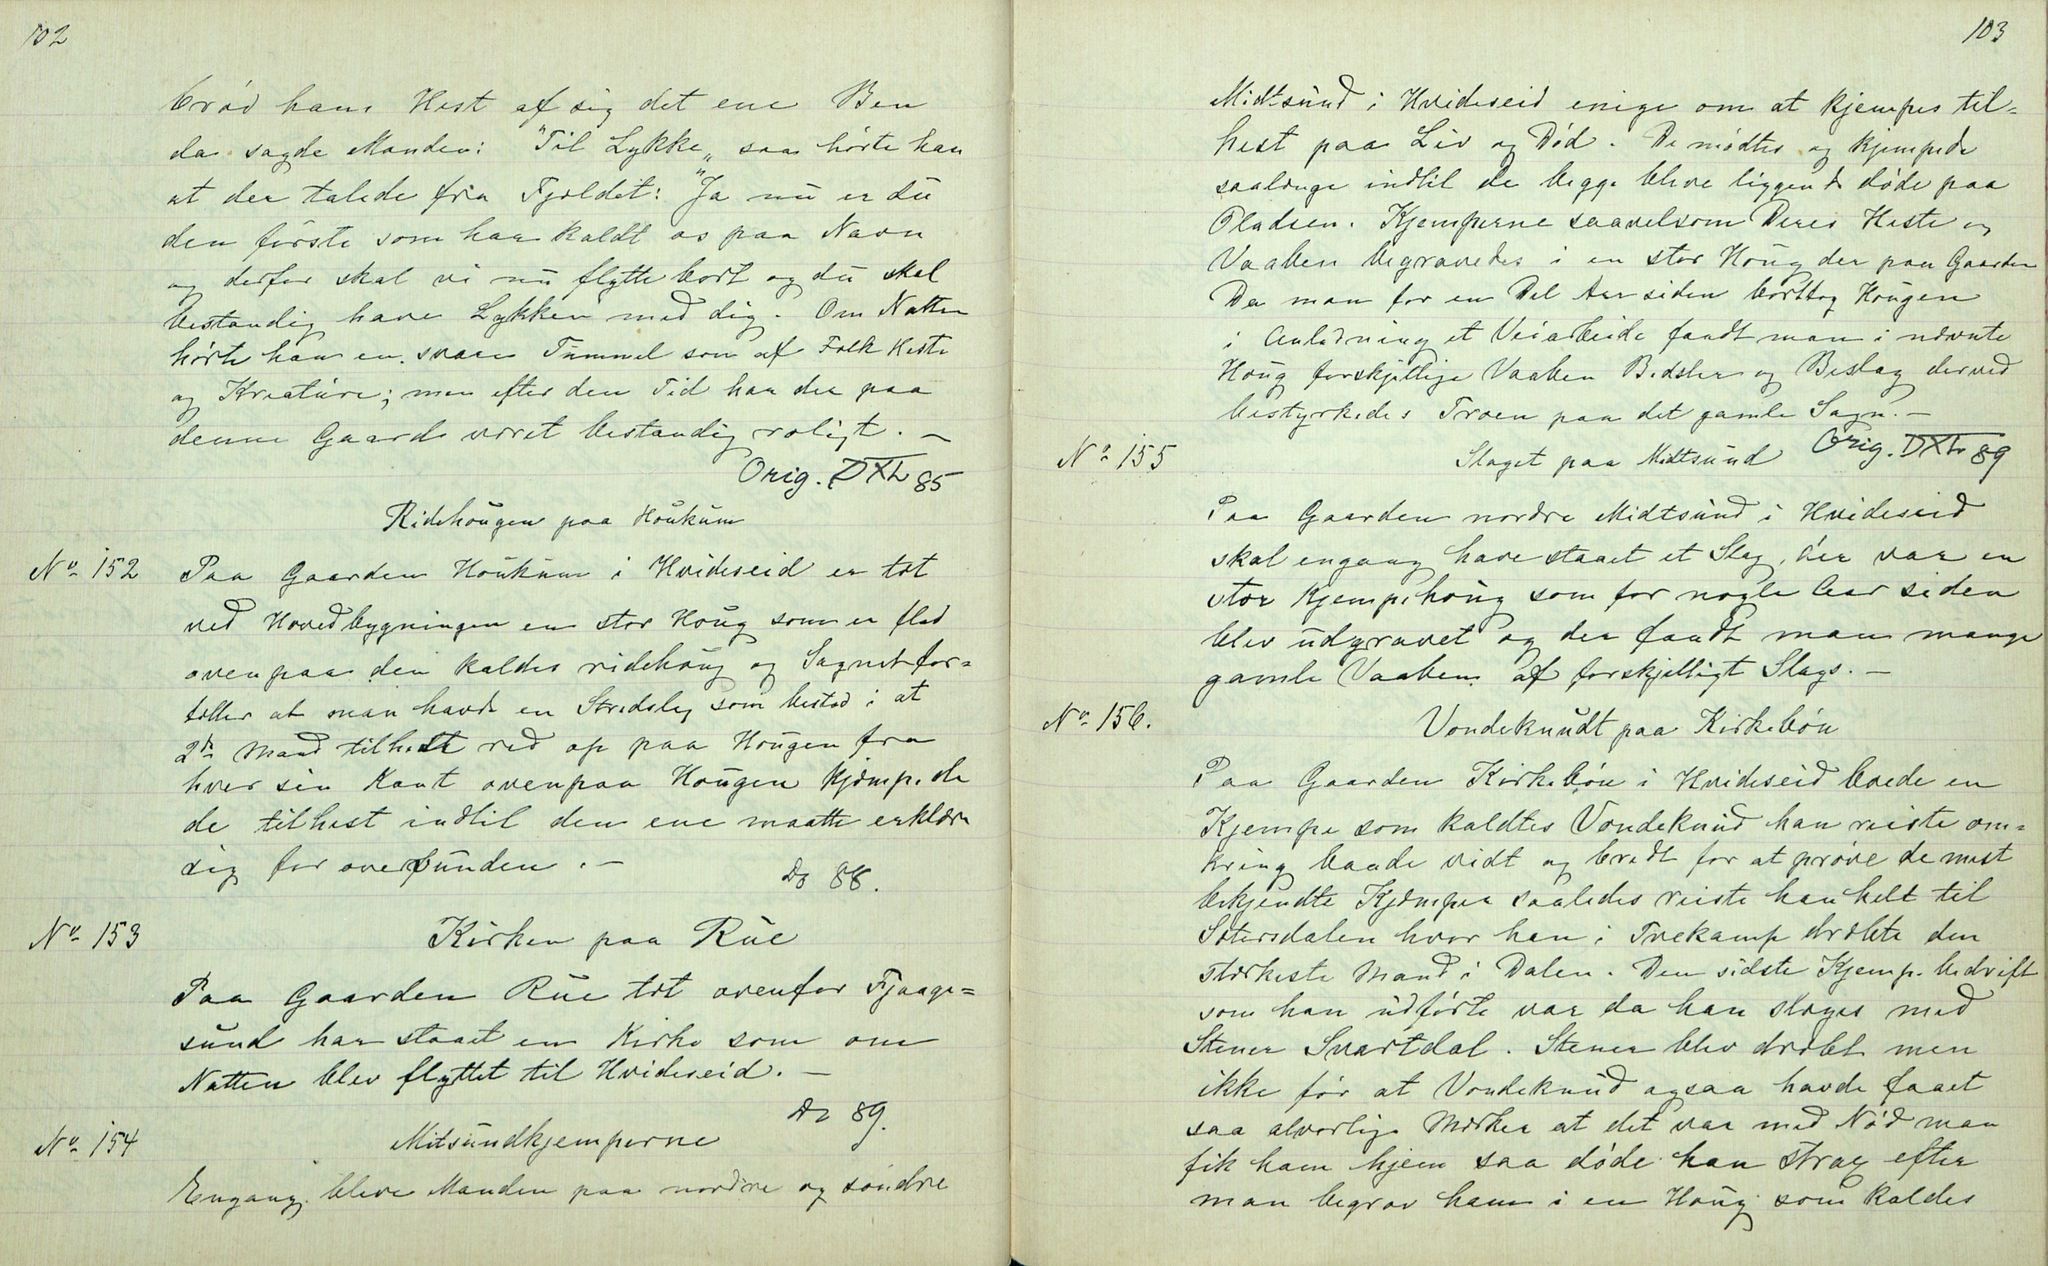 102
brød hans Hest af sig det ene Ben
da sagde Manden: "Til Lykke„ saa hørte han
at der talede fra Fjeldet: "Ja nu er du
den første som har kaldt os paa Navn
og derfor skal vi nu flytte bort og du skal
bestandig have Lykken med dig. Om Natten
hørte han en svær Tummel som af Folk Heste
og Kreature; men efter den Tid har der paa
denne Gaard været bestandig roligt. —
Orig. DXL 85
Ridehougen paa Houkum
No 152 Paa Gaarden Houkum i Hvideseid er tæt
ved Hovedbygningen en stor Houg som er flad
ovenpaa den kaldes ridehoug og Sagnet for=
tæller at man havde en Stridsleg som bestod i at
2de Mand tilhest red op paa Hougen fra
hver sin Kant ovenpaa Hougen kjæmpede
de tilhest indtil den ene maatte erklære
sig for overvunden. —
Do 88.
No 153 Kirken paa Rue
Paa Gaarden Rue tæt ovenfor Fjaage=
sund har staaet en Kirke som om
Natten blev flyttet til Hvideseid. —
Do 89.
No 154 Mitsundkjemperne
Engang bleve Manden paa nordre og søndre
103
Midtsund i Hvideseid enige om at kjempes til=
hest paa Liv og Død. De mødtes og kjempede
saalænge indtil de begge bleve liggende døde paa
Pladsen. Kjemperne saavelsom Deres Heste og
Vaaben begravedes i en stor Houg der paa Gaarden
Da man for en Del Aar siden borttog Hougen
i Anledning et Veiarbeide fandt man i nævnte
Houg forskjellige Vaaben Bidsler og Beslag derved
bestyrkedes Troen paa det gamle Sagn. —
Orig. DXL 89
No 155 Slaget paa Midtsund
Paa Gaarden nordre Midtsund i Hvideseid
skal engang have staaet et Slag, der var en
stor Kjempehoug som for nogle Aar siden
blev udgravet og der fandt man mange
gamle Vaaben af forskjelligt Slags. —
No 156. Vondeknudt paa Kirkebøn
Paa Gaarden Kirkebøn i Hvideseid boede en
Kjempe som kaldtes Vondeknud han reiste om=
kring baade vidt og bredt for at prøve de mest
bekjendte Kjæmper saaledes reiste han helt til
Sætersdalen hvor han i Tvekamp dræbte den
stærkeste Mand i Dalen. Den sidste Kjempebedrift
som han udførte var da han sloges med
Stener Svartdal. Stener blev dræbt men
ikke før at Vondeknud ogsaa havde faaet
saa alvorlige Mærker at det var med Nød man
fik ham hjem saa døde han strax efter
man begrov ham i en Houg som kaldes